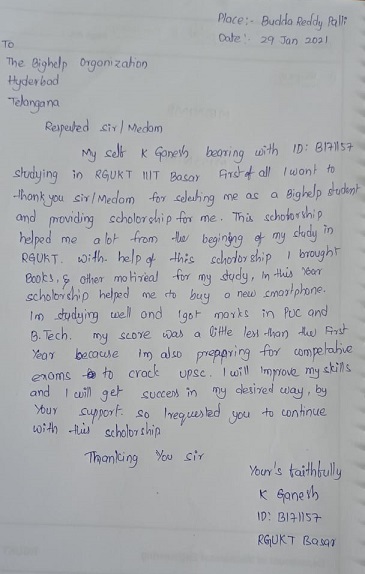 Place:- Budda Reddy Palli
Date:- 29 Jan 2021
To
The Bighelp Organization
Hyderbad
Telangana
Respected sir/Medam
My self K Ganesh bearing with ID: B171157
studying in RGUKT IIIT Basar First of all I want to
thank you sir/Medom for selecting me as a Bighelp student
and providing scholorship for me. This scholorship
helped me alot from the begining of my study in
RGUKT. With help of this scholorship I brought
Books, & other motireal for my study, In this Year
scholorship helped me to buy a new smartphone.
Im studying well and Igot marks in PUC and
B.Tech. my score was a little less than the First
Year because Im also preppring for competative
exoms to crack upsc. I will Improve my skills
and I will get success in my desired way, by
Your support. so Irequested you to continue
with this scholorship
Thanking You Sir
Your's faithfully
K Ganesh
ID: B171157
RGUKT Basar